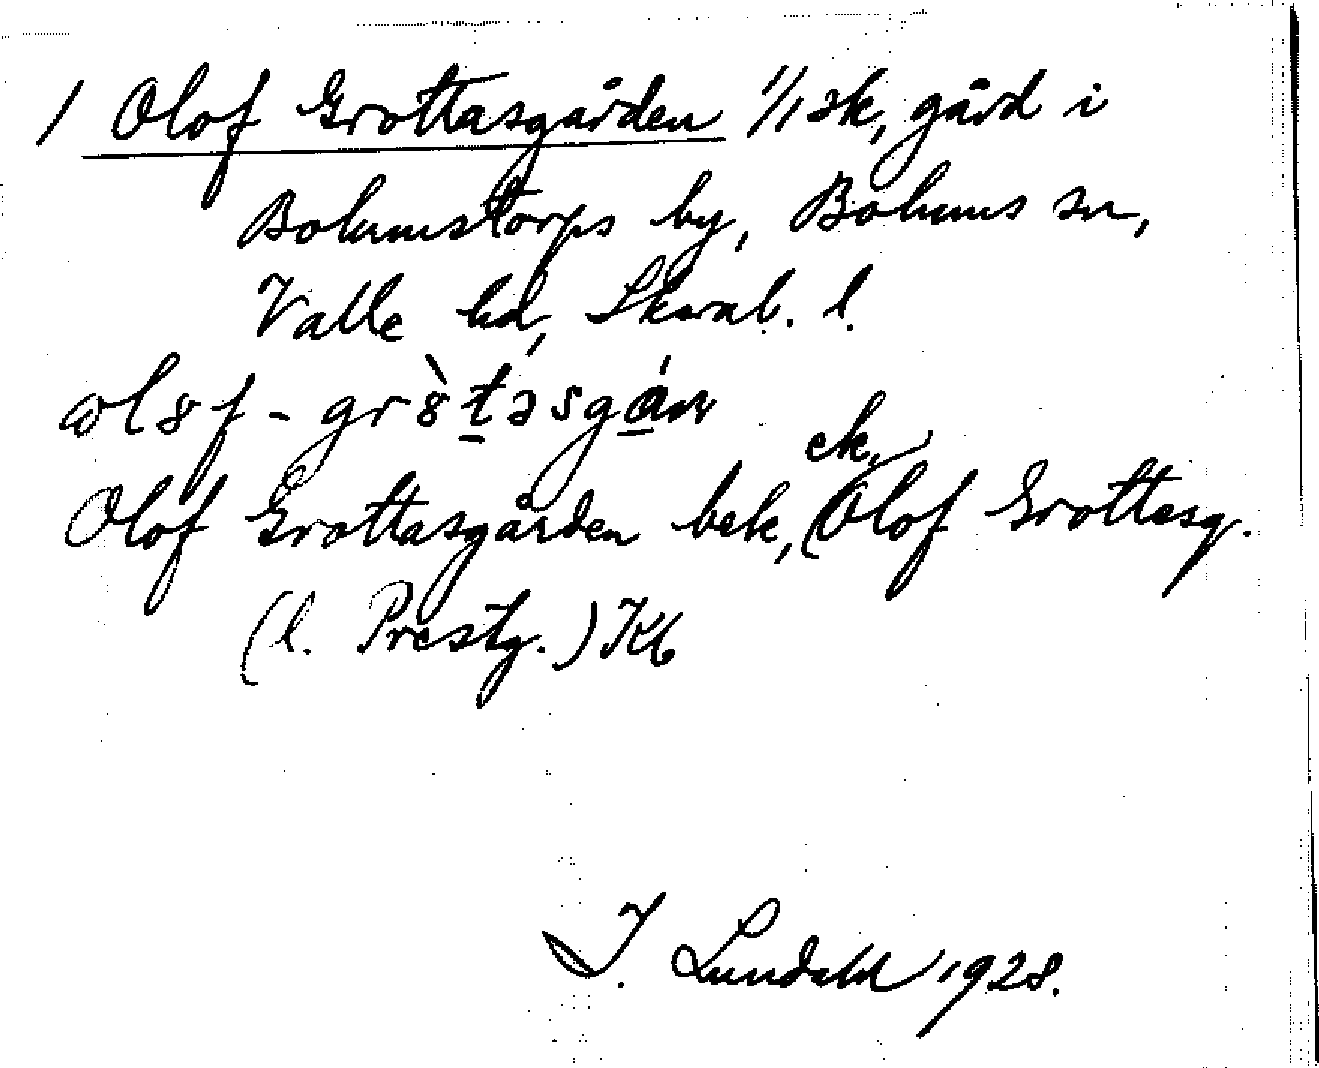 1 Olof Grottasgården 1/1 sk, gård i
Bolumstorps by, Bolums sn,
Valle hd, Skarab. l.
ωl8f - gr8̀t̲əsgá̲ṇ
Olof Grottasgården bek, (Olof Grottesg. ek,
(l. Prestg.) Kb
I. Lundahl 1928.